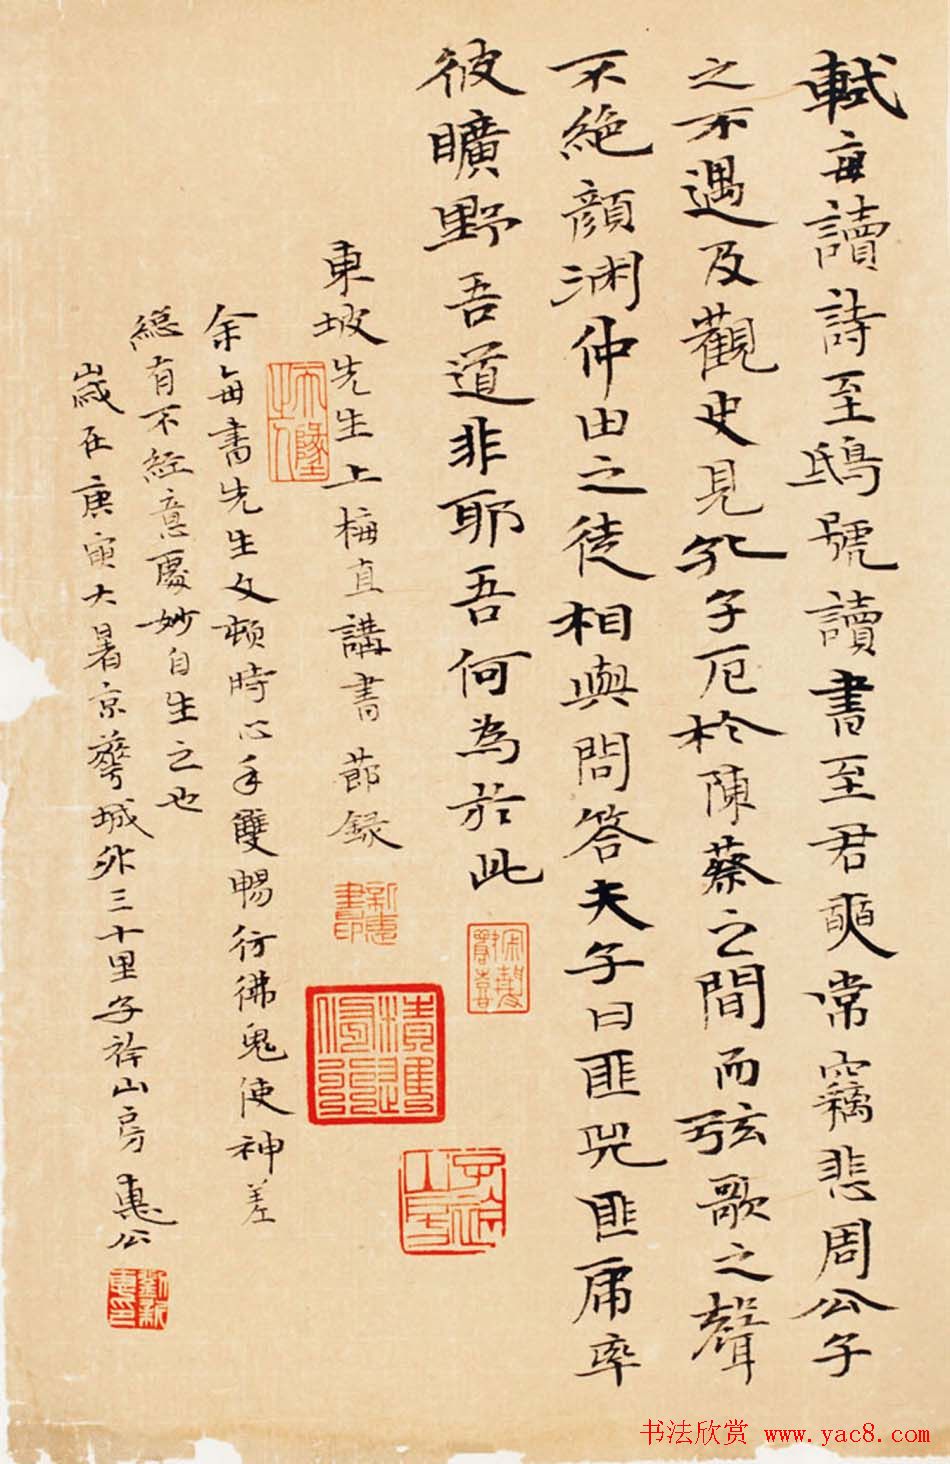 軾每讀詩至鴟號讀書至君奭常竊悲周公子
之不遇及觀史見孔子厄於陳蔡之間而弦歌之聲
不絕顏渊仲由之徒相與問答夫子曰匪兕匪虎率
彼曠野吾道非耶吾何為於此
東坡先生上梅直講書節録
余每書先生文頓時心手雙暢彷彿鬼使神差
縂有不經意處妙自生之也
歲在庚寅大暑京華城外三十里子衿山房 惠公
新惠書印
子衿山房
劉新惠印
书法欣赏 www.yac8.com